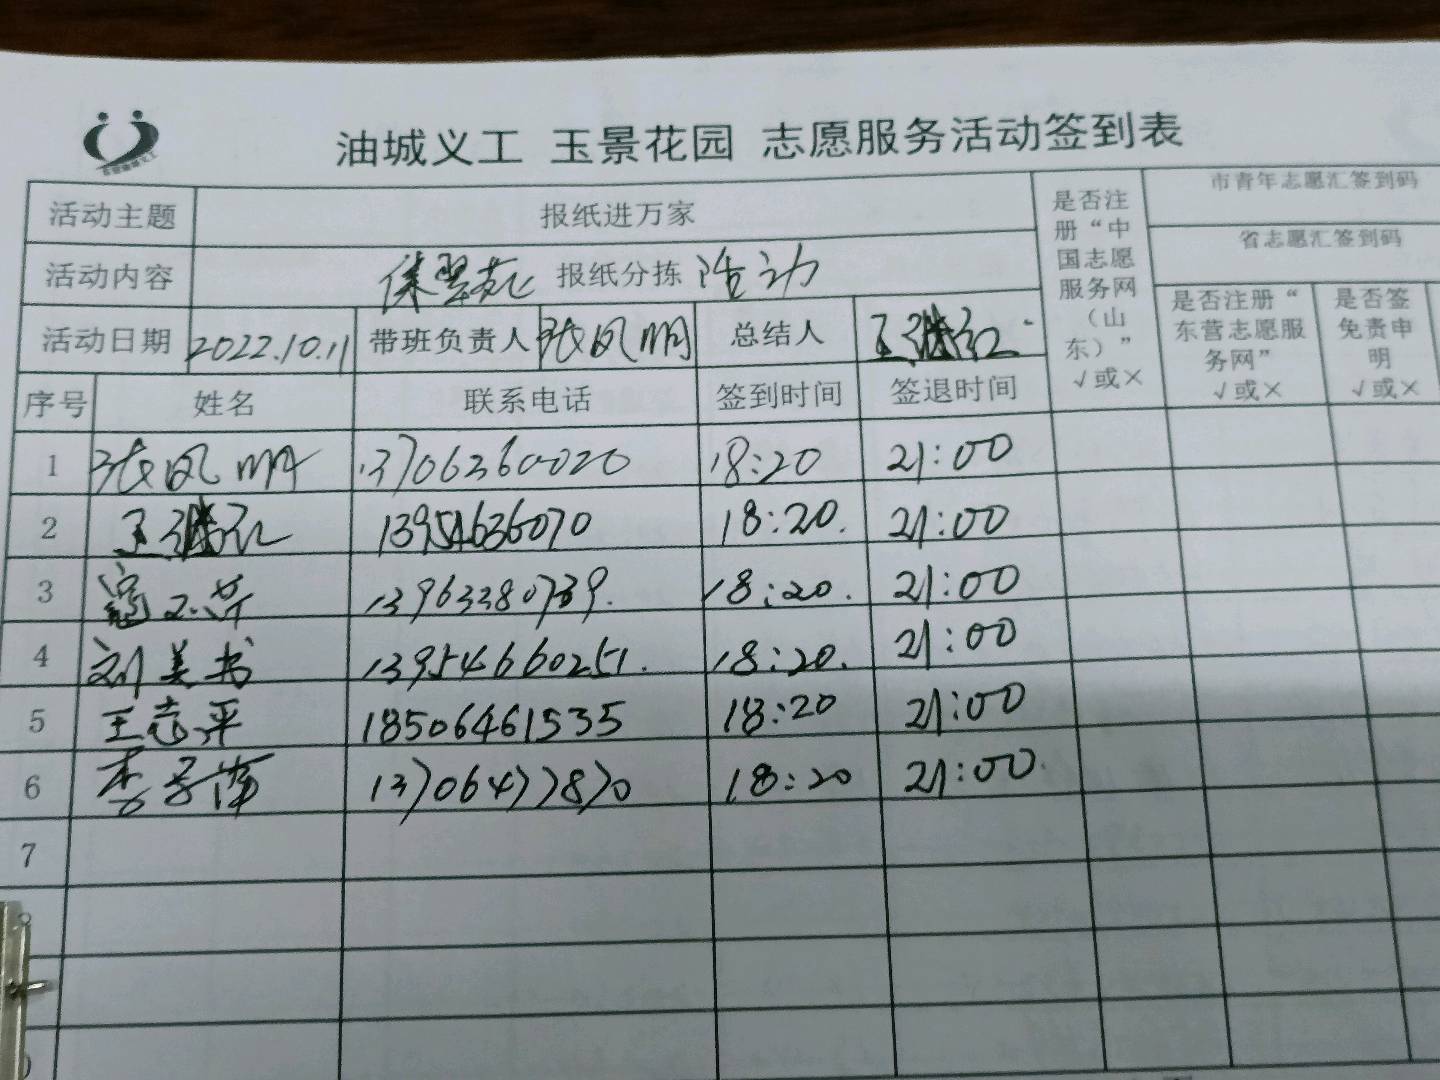 油城义工 玉景花园 志愿服务活动签到表
活动主题 报纸进万家
活动内容 报纸分拣 活动
活动日期 2022.10.11 带班负责人 张凤明 总结人 王继红
是否注册“中国志愿服务网（山东）” √或×
市青年志愿汇签到码
省志愿汇签到码
是否注册“东营志愿服务网” √或×
是否签免责申明 √或×
序号 姓名 联系电话 签到时间 签退时间
1 张凤明 13706360020 18:20 21:00
2 王继红 13954636070 18:20. 21:00
3 13963380739. 18:20. 21:00
4 刘美书 13954660251. 18:20. 21:00
5 王志平 18506461535 18:20 21:00
6 李 13706477870 18:20 21:00
7